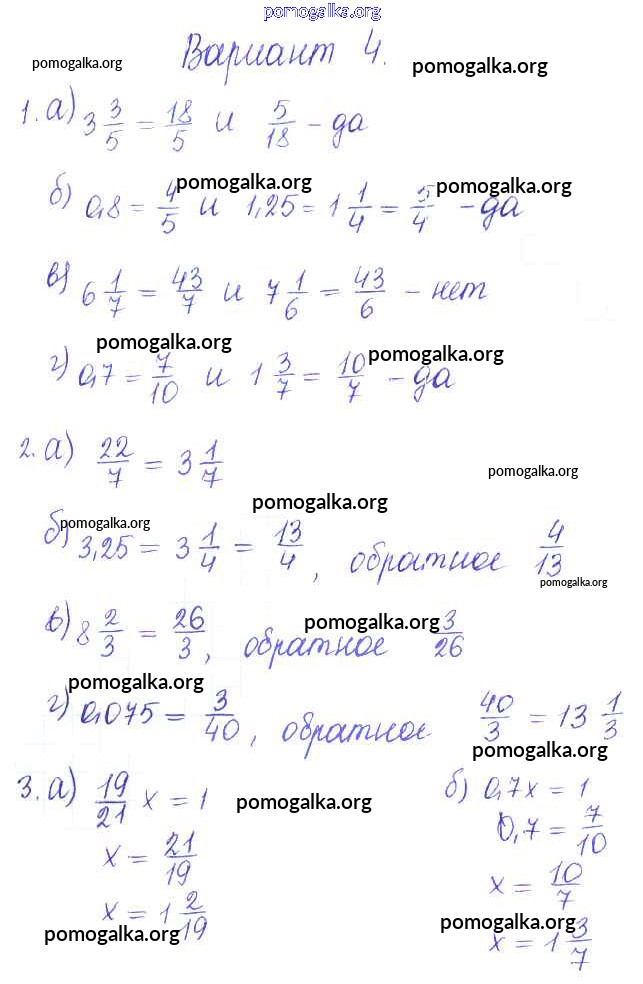 pomogalka.org
Вариант 4.
pomogalka.org
pomogalka.org
1. а) 3 3/5 = 18/5 и 5/18 - да
pomogalka.org
pomogalka.org
б) 0,8 = 4/5 и 1,25 = 1 1/4 = 5/4 - да
в) 6 1/7 = 43/7 и 7 1/6 = 43/6 - нет
pomogalka.org
pomogalka.org
г) 0,7 = 7/10 и 1 3/7 = 10/7 - да
2. а) 22/7 = 3 1/7
pomogalka.org
pomogalka.org
pomogalka.org
б) 3,25 = 3 1/4 = 13/4, обратное 4/13
pomogalka.org
pomogalka.org
в) 8 2/3 = 26/3, обратное 3/26
pomogalka.org
г) 0,075 = 3/40, обратное 40/3 = 13 1/3
pomogalka.org
3. а) 19/21 x = 1
x = 21/19
x = 1 2/19
pomogalka.org
pomogalka.org
б) 0,7x = 1
0,7 = 7/10
x = 10/7
pomogalka.org
x = 1 3/7